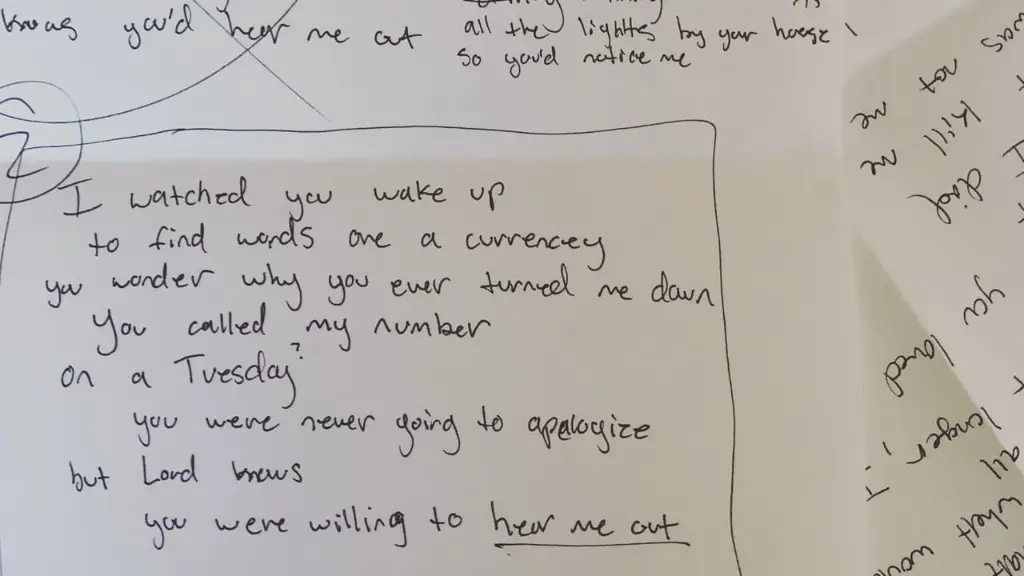 knows you'd hear me out
all the lightts by your house
so you'd notice me
2
I watched you wake up
to find words are a currencey
you wonder why you ever turned me down
You called my number
on a Tuesday?
you were never going to apologize
but Lord knows
you were willing to hear me out
was
not me
kill me
did
I
you
loved
longer I
all
what
would